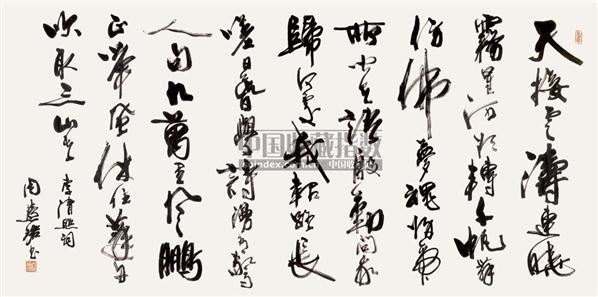 天接云濤連曉
霧星河欲轉千帆舞
仿佛夢魂歸帝
所聞天語殷勤問我
歸何處我報路長
嗟日暮學詩謾有驚
人句九萬里風鵬
正舉風休住蓬舟
吹取三山去
李清照詞
周慧珺书
中国收藏指数